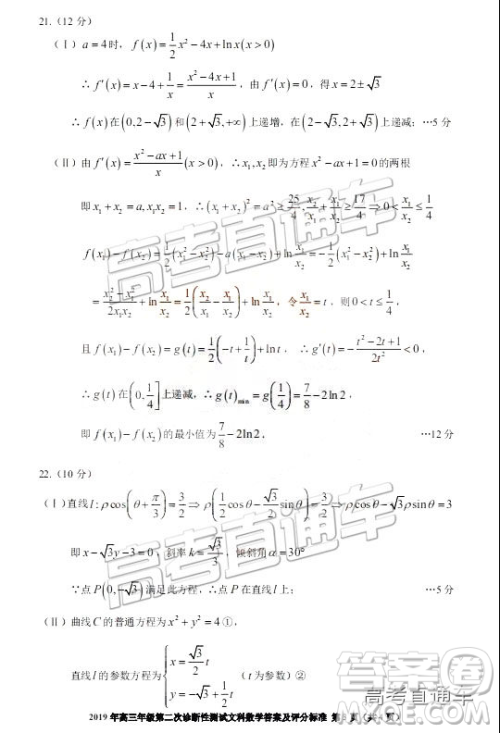 21.(12 分)
(Ⅰ) a = 4 时, f(x) = 1/2 x² − 4x + ln x (x > 0)
∴ f′(x) = x − 4 + 1/x = (x² − 4x + 1)/x, 由 f′(x) = 0, 得 x = 2 ± √3
∴ f(x) 在 (0, 2 − √3) 和 (2 + √3, +∞) 上递增, 在 (2 − √3, 2 + √3) 上递减; …5 分
(Ⅱ) 由 f′(x) = (x² − ax + 1)/x (x > 0), ∴ x₁, x₂ 即为方程 x² − ax + 1 = 0 的两根
即 x₁ + x₂ = a, x₁x₂ = 1, ∴ (x₁ + x₂)² = a² ≥ 25/4, x₂/x₁ + x₁/x₂ ≥ 17/4 ⇒ 0 < x₁/x₂ ≤ 1/4
f(x₁) − f(x₂) = 1/2 (x₁² − x₂²) − a(x₁ − x₂) + ln x₁/x₂ = −1/2 (x₁² − x₂²) + ln x₁/x₂
= (x₂² − x₁²)/(2x₁x₂) + ln x₁/x₂ = 1/2 (x₂/x₁ − x₁/x₂) + ln x₁/x₂, 令 x₁/x₂ = t, 则 0 < t ≤ 1/4,
且 f(x₁) − f(x₂) = g(t) = 1/2 (−t + 1/t) + ln t, ∴ g′(t) = −(t² − 2t + 1)/(2t²) < 0,
∴ g(t) 在 (0, 1/4] 上递减, ∴ g(t)min = g(1/4) = 7/8 − 2ln2,
即 f(x₁) − f(x₂) 的最小值为 7/8 − 2ln2, …12 分
22.(10 分)
(Ⅰ) 直线 l : ρcos(θ + π/3) = 3/2 ⇒ ρ(1/2 cosθ − √3/2 sinθ) = 3/2 ⇒ ρcosθ − √3ρsinθ = 3
即 x − √3y − 3 = 0, 斜率 k = √3/3, 倾斜角 α = 30°
∵点 P(0, −√3) 满足此方程, ∴点 P 在直线 l 上; …5 分
(Ⅱ) 曲线 C 的普通方程为 x² + y² = 4 ①,
直线 l 的参数方程为 { x = √3/2 t
y = −√3 + 1/2 t (t 为参数) ②
2019 年高三年级第二次诊断性测试文科数学答案及评分标准 第 页 (共 页)
高考直通车
高考直通车
高考直通车
答案圈